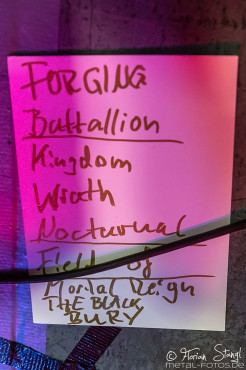 FORGING
Battallion
Kingdom
Wrath
Nocturnal
Field of
Mortal Reign
THE BLACK
BURY
© Florian Stangl
METAL-FOTOS.DE